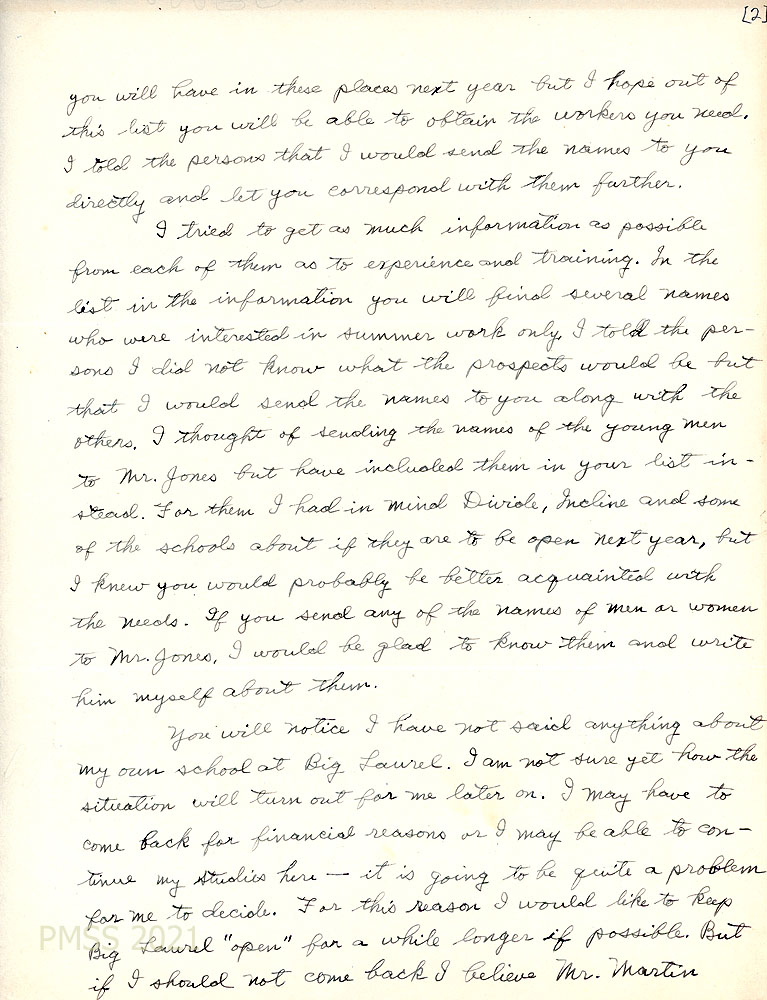 [2]
you will have in these places next year but I hope out of
this list you will be able to obtain the workers you need.
I told the persons that I would send the names to you
directly and let you correspond with them further.
I tried to get as much information as possible
from each of them as to experience and training. In the
list in the information you will find several names
who were interested in summer work only. I told the per-
sons I did not know what the prospects would be but
that I would send the names to you along with the
others. I thought of sending the names of the young men
to Mr. Jones but have included them in your list in-
stead. For them I had in mind Divide, Incline and some
of the schools about if they are to be open next year, but
I knew you would probably be better acquainted with
the needs. If you send any of the names of men or women
to Mr. Jones, I would be glad to know them and write
him myself about them.
You will notice I have not said anything about
my own school at Big Laurel. I am not sure yet how the
situation will turn out for me later on. I may have to
come back for financial reasons or I may be able to con-
tinue my studies here — it is going to be quite a problem
for me to decide. For this reason I would like to keep
Big Laurel "open" for a while longer if possible. But
if I should not come back I believe Mr. Martin
PMSS 2021